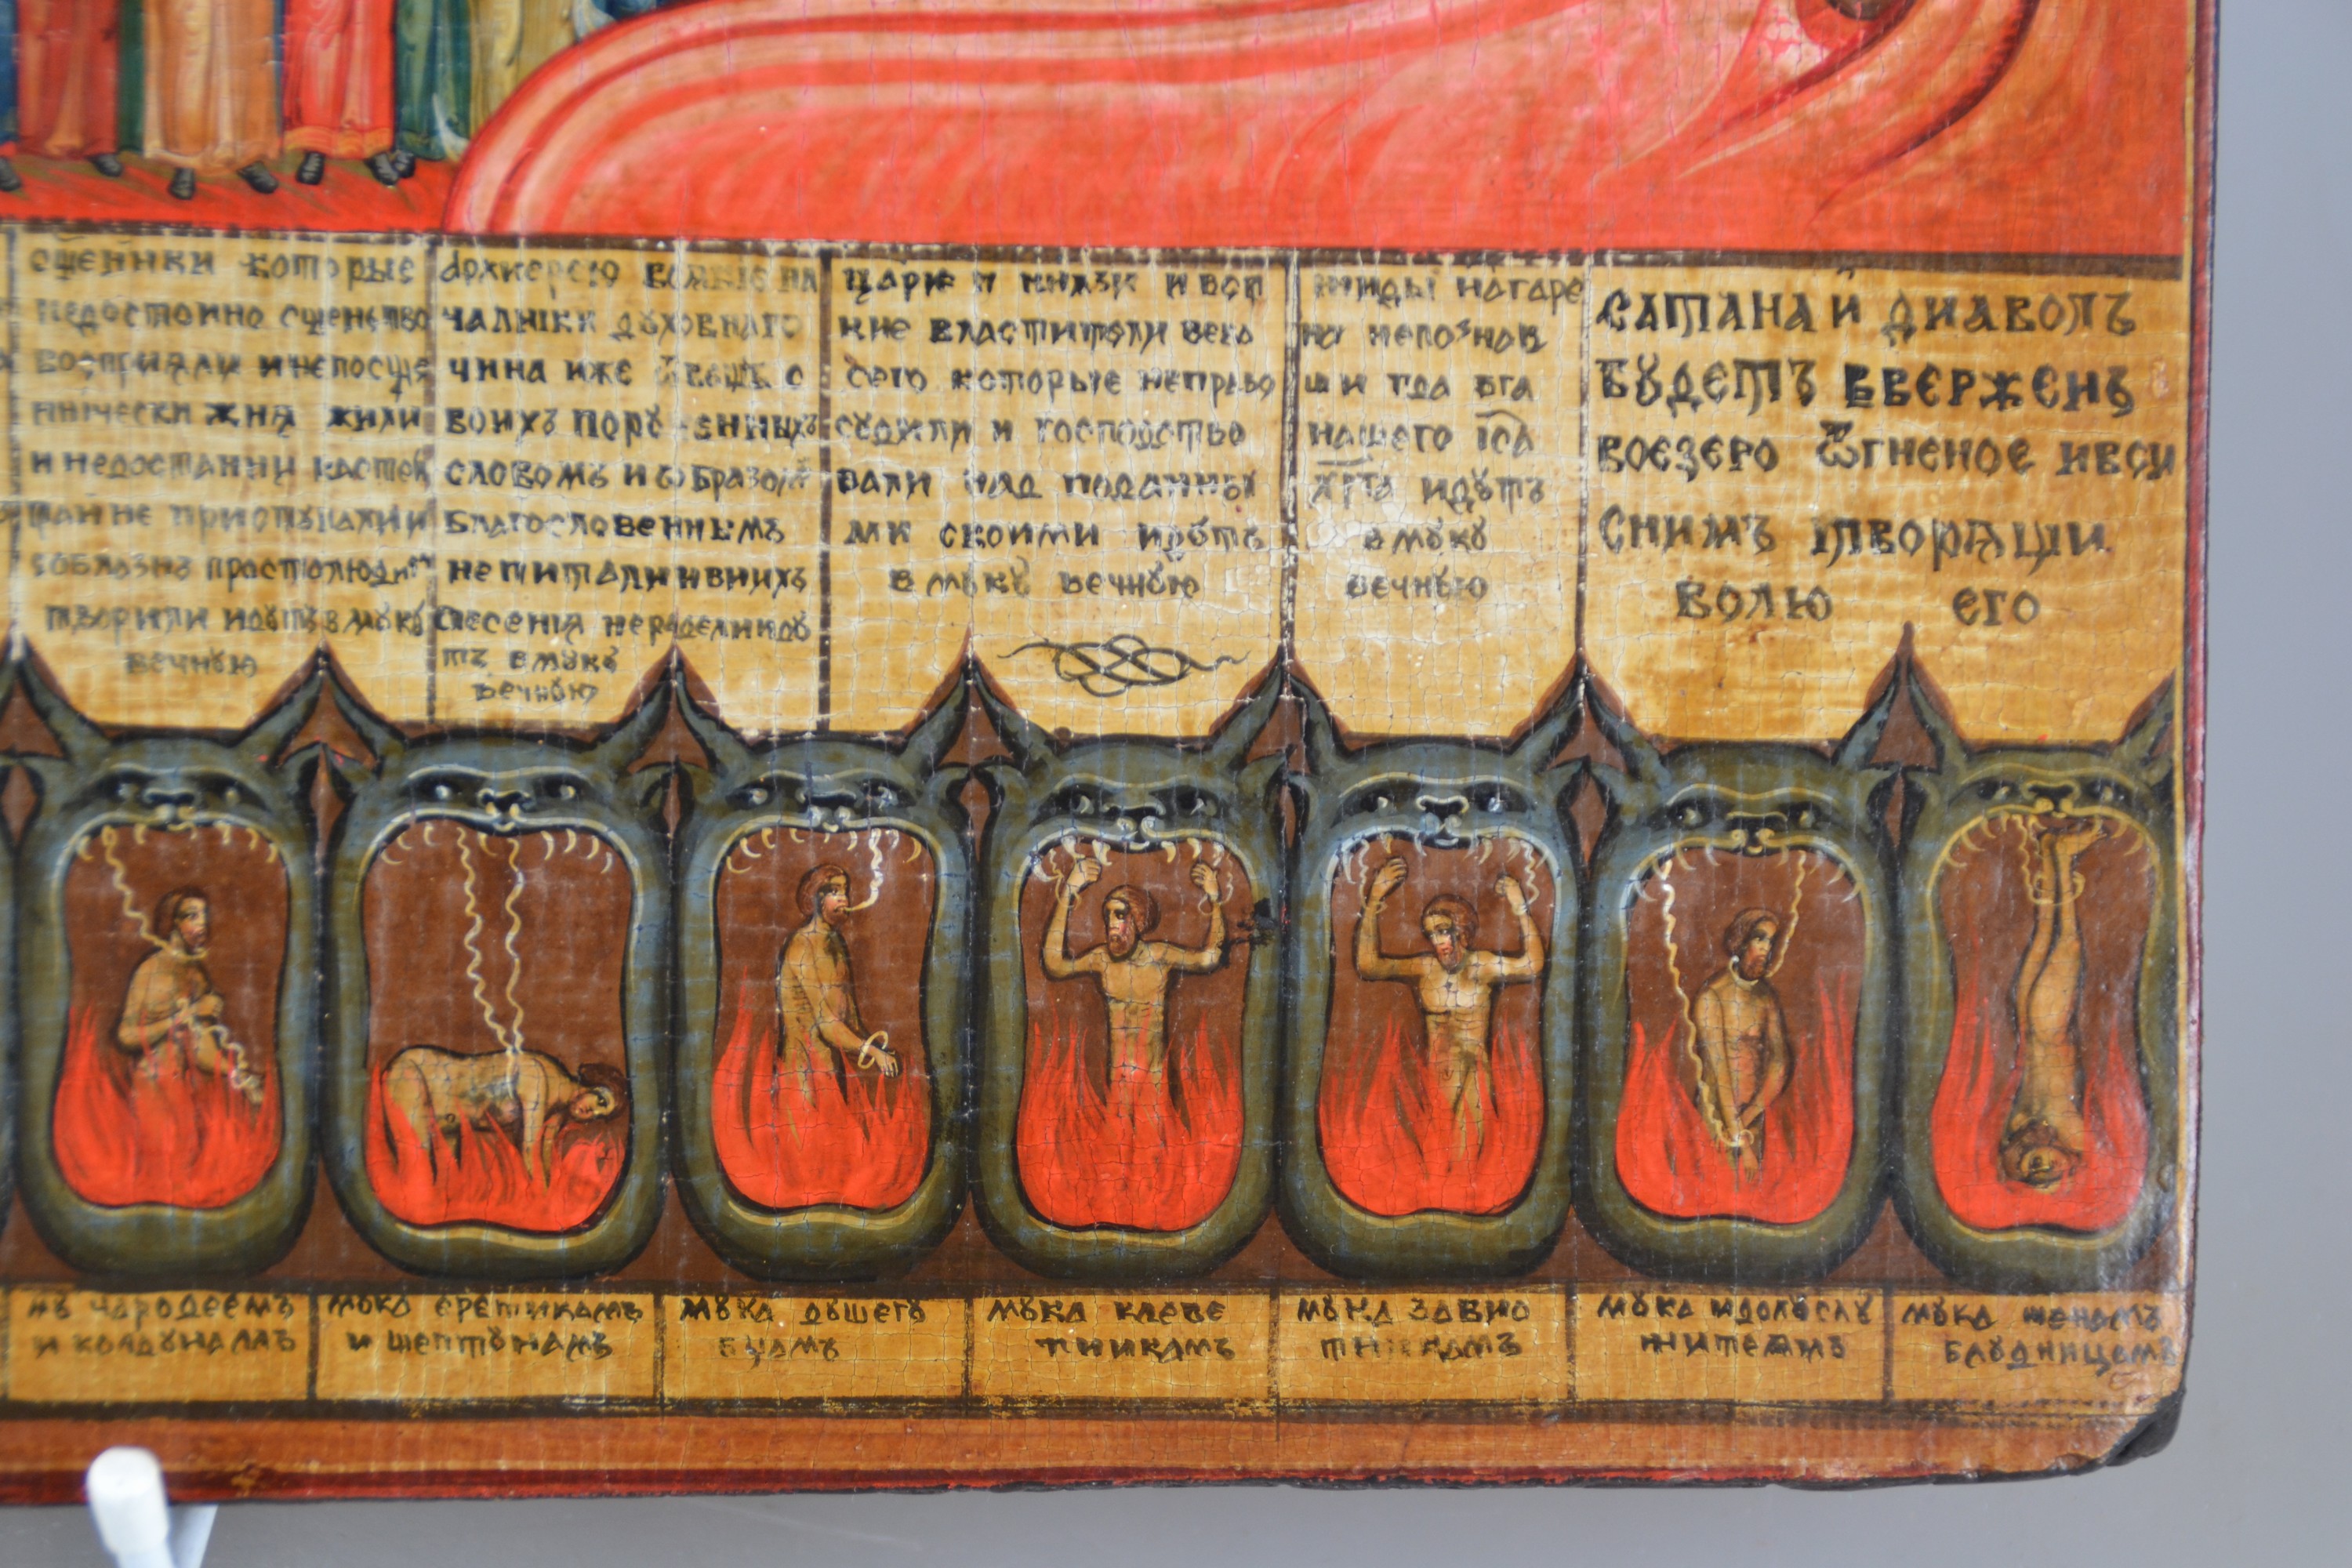 сщенники которые
недостоино сщенство
восприяли и непосще
ннически жня жили
и недостаини
таи не приступали и
соблазнъ простолюди
творили идутъ в муку
вечную
Архиерею
чалники духовнаго
чина иже
воихъ
словомъ и ѡбразо
благословеннымъ
не питали и вних
спесения нераделиидꙋ
тъ вмꙋкꙋ
вечнꙋю
Царие и князи и вся
кие властители века
сего которые неправо
сꙋдили и господство
вали над поданны
ми своими идꙋть
в мꙋкꙋ вечнꙋю
жиды нагаре
не непознав
ши гда бга
нашего Іса
хрта идꙋтъ
вмꙋкꙋ
вечнꙋю
сатана и диаволъ
бꙋдетъ ввержень
воезеро ѿгненое ивси
снимъ творящи
волю его
чародеемъ
и колдꙋнамъ
мꙋка еретикамъ
и шептꙋнамъ
мꙋка дꙋшегꙋ
бцамъ
мꙋка клеве
тникамъ
мꙋка завис
тникамъ
мꙋка идолꙋслꙋ
жителмъ
мꙋка женамъ
блꙋдницамъ